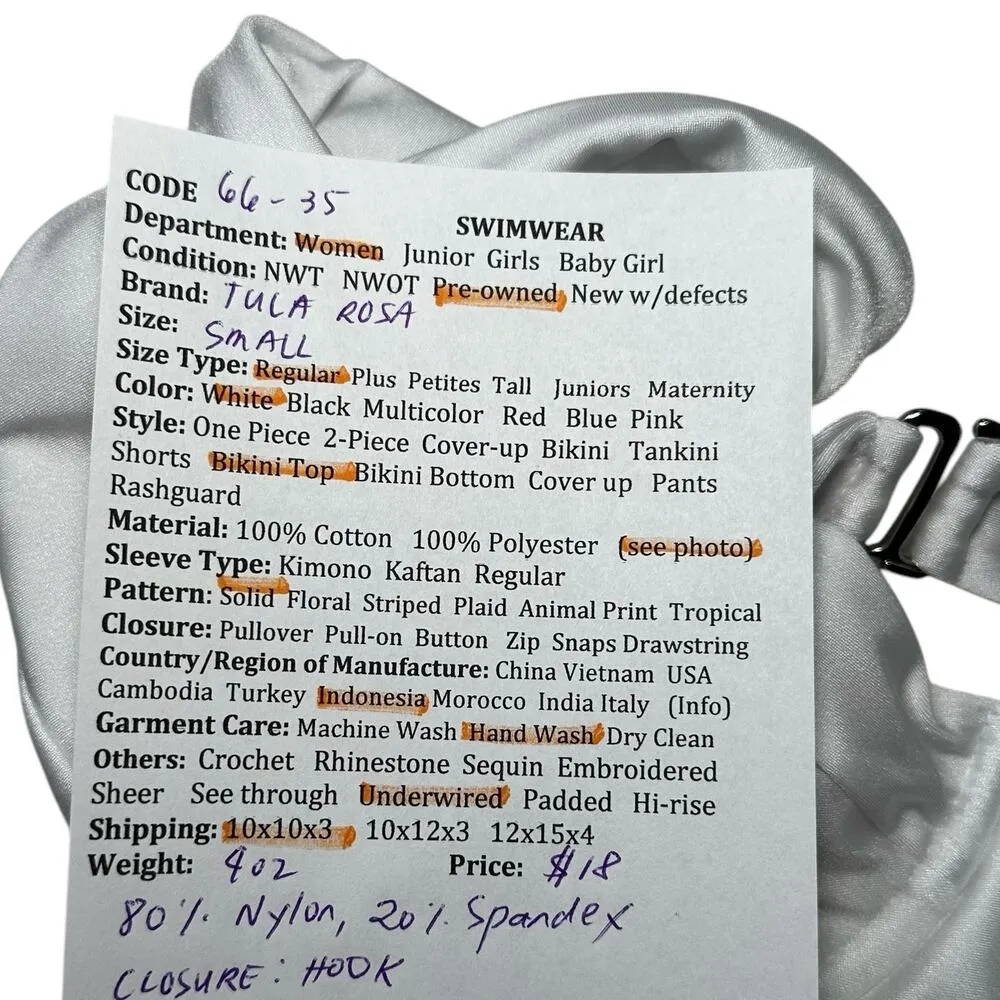 CODE 66-35
SWIMWEAR
Department: Women Junior Girls Baby Girl
Condition: NWT NWOT Pre-owned New w/defects
Brand: TULA ROSA
Size: SMALL
Size Type: Regular Plus Petites Tall Juniors Maternity
Color: White Black Multicolor Red Blue Pink
Style: One Piece 2-Piece Cover-up Bikini Tankini
Shorts Bikini Top Bikini Bottom Cover up Pants
Rashguard
Material: 100% Cotton 100% Polyester (see photo)
Sleeve Type: Kimono Kaftan Regular
Pattern: Solid Floral Striped Plaid Animal Print Tropical
Closure: Pullover Pull-on Button Zip Snaps Drawstring
Country/Region of Manufacture: China Vietnam USA
Cambodia Turkey Indonesia Morocco India Italy (Info)
Garment Care: Machine Wash Hand Wash Dry Clean
Others: Crochet Rhinestone Sequin Embroidered
Sheer See through Underwired Padded Hi-rise
Shipping: 10x10x3 10x12x3 12x15x4
Weight: 4oz Price: $18
80% Nylon, 20% Spandex
CLOSURE: HOOK